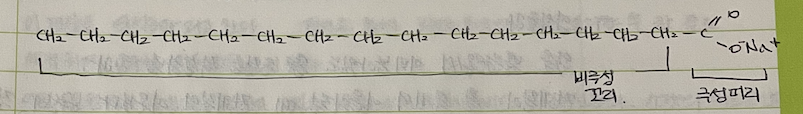 CH₂-CH₂-CH₂-CH₂-CH₂-CH₂-CH₂-CH₂-CH₂-CH₂-CH₂-CH₂-CH₂-CH₂-CH₂-C
O
O⁻Na⁺
비극성
꼬리.
극성머리